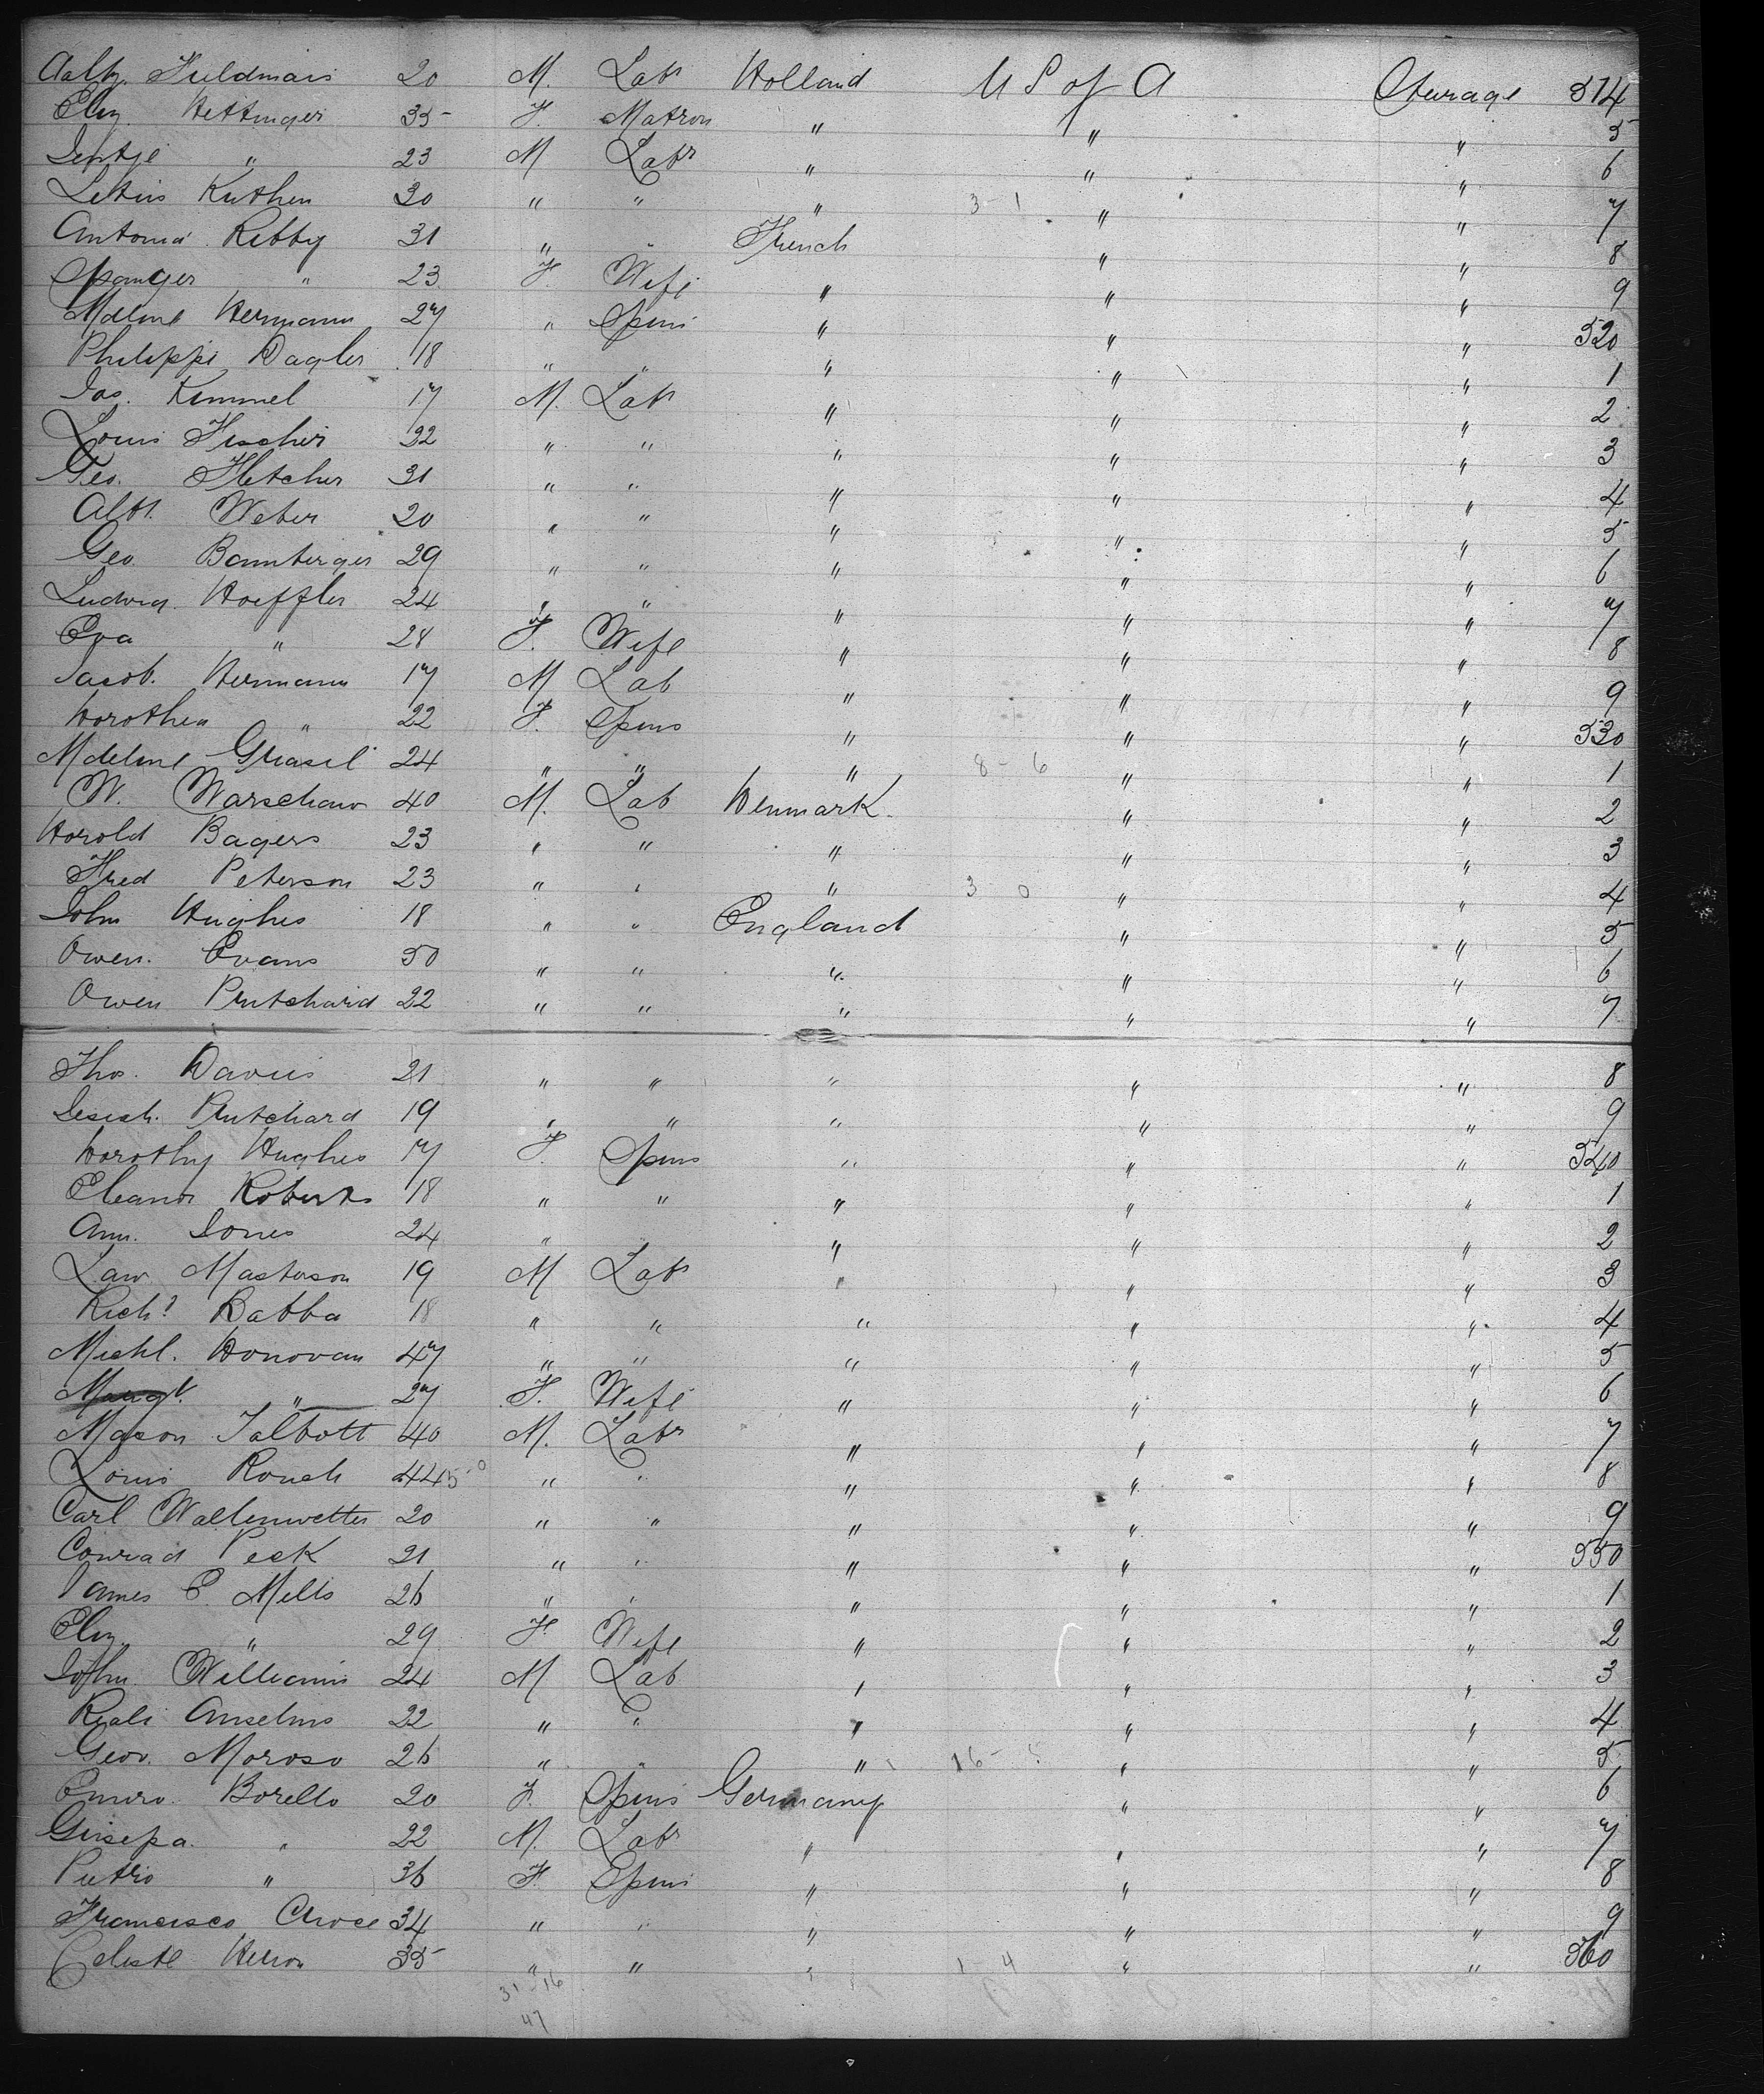 Aalb. Fuldmais 20 M. Labr Holland U S of A Sturage 514
Eliz. Hettinger 35 F. Matron " " " 5
Jentje " 23 M Labr " " " 6
Letus Kuthen 30 " " " 3-1 " " 7
Antonia Rebby 31 " " French " " 8
Spanger " 23 F. Wife " " " 9
Mdeline Hermann 27 " Spins " " " 520
Philippi Dagler 18 " " " " " 1
Jos. Kimmel 17 M. Labr " " " 2
Louis Fischer 22 " " " " " 3
Geo. Fletcher 31 " " " " " 4
Albt. Weber 20 " " " " " 5
Geo Bamberger 29 " " " " " 6
Ludwig. Hoeffler 24 " " " " " 7
Eva " 28 F. Wife " " " 8
Jacob. Hermann 17 M Lab " " " 9
Dorothea " 22 F. Spins " " " 530
Mdeline Grasel 24 " " " 8-6 " " 1
W. Warschaw 40 M. Lab Denmark. " " 2
Horold Bagers 23 " " " " " 3
Fred Peterson 23 " " " 3 0 " " 4
John Hughes 18 " " England " " 5
Owen. Evans 50 " " " " " 6
Owen Prutchard 22 " " " " " 7
Tho. Davies 21 " " " " " 8
Prutchard 19 " " " " " 9
Dorothy Hughes 17 F. Spins " " " 540
Eleanor Roberts 18 " " " " " 1
Ann. Jones 24 " " " " " 2
Law Masterson 19 M Labr " " " 3
Richd Babba 18 " " " " " 4
Michl. Donovan 47 " " " " " 5
Margt. " 27 F. Wife " " " 6
Mason Talbott 40 M. Labr " " " 7
Louis Rouch 44 " " " " " 8
Carl Wallenwetter 20 " " " " " 9
Conrad Peck 21 " " " " " 550
James E. Mills 26 " " " " " 1
Eliz. " 29 F Wife " " " 2
John. Williams 24 M Lab " " " 3
Reali Anselmo 22 " " " " " 4
Geov. Moroso 26 " " " 16- " " 5
Borello 20 F. Spins Germany " " 6
Gusepa. " 22 M. Labr " " " 7
Pietro " 36 F. Spins " " " 8
Francisco Croce 34 " " " " " 9
Celeste Heron 35 " " " 1 4 " " 560
31 16
47